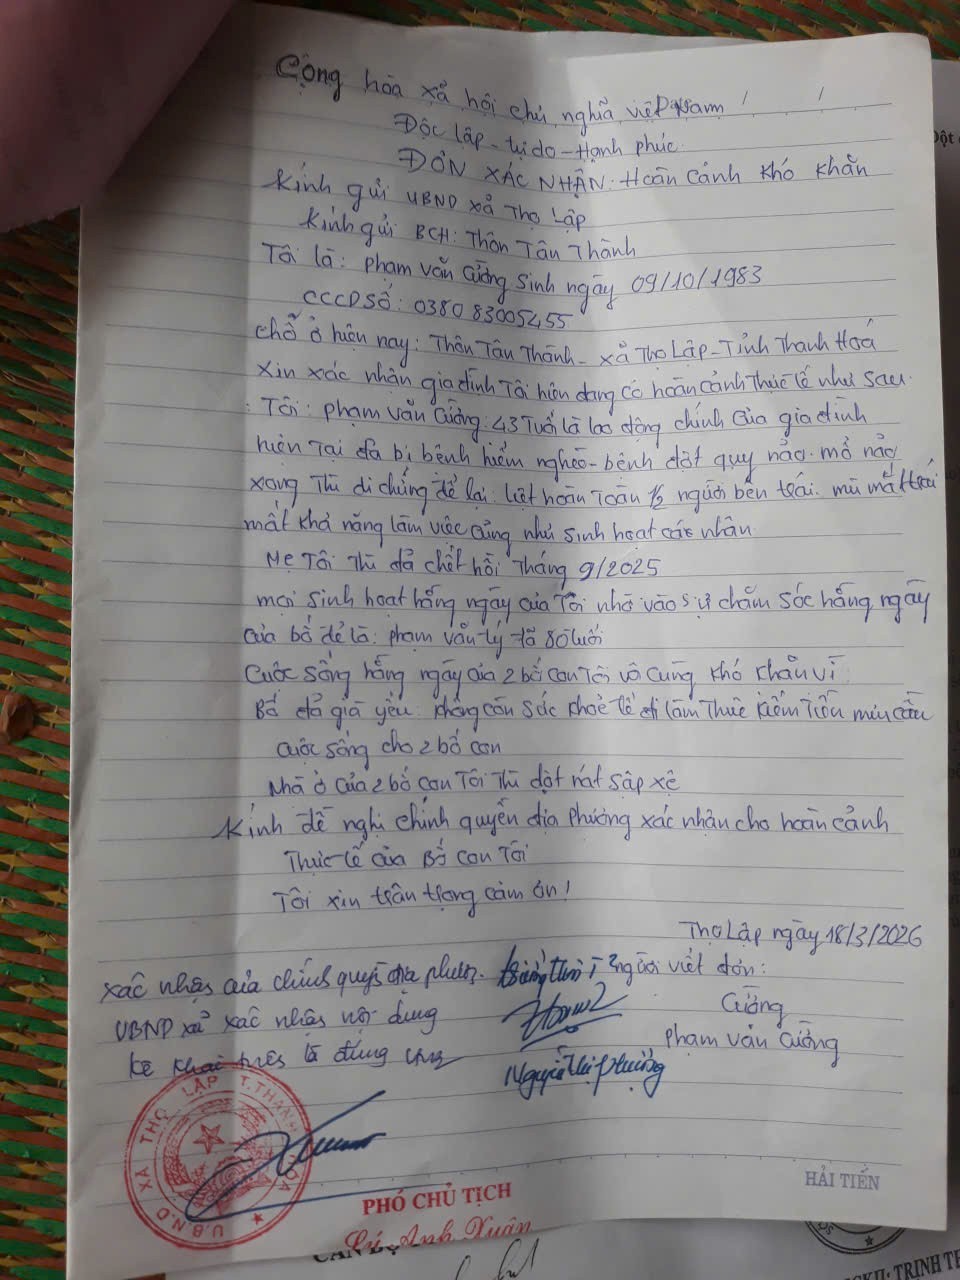 Cộng hòa xã hội chủ nghĩa việt Nam
Độc lập - tự do - Hạnh phúc
ĐƠN XÁC NHẬN: Hoàn cảnh khó khăn
Kính gửi UBND xã Thọ Lập
Kính gửi BCH: Thôn Tân Thành
Tôi là: phạm văn Cường sinh ngày 09/10/1983
CCCD Số: 038083005455
chỗ ở hiện nay: Thôn Tân Thành - xã Thọ Lập - Tỉnh Thanh Hoá
xin xác nhận gia đình Tôi hiện đang có hoàn cảnh thực tế như sau:
Tôi: phạm văn Cường: 43 Tuổi là lao động chính của gia đình
hiện tại đã bị bệnh hiểm nghèo - bệnh đột quỵ não. mổ não
xong thì di chứng để lại: liệt hoàn toàn 1/2 người bên trái. mù mắt trái
mất khả năng làm việc cũng như sinh hoạt các nhân
Mẹ Tôi thì đã chết hồi tháng 9/2025
mọi sinh hoạt hằng ngày của Tôi nhờ vào sự chăm sóc hằng ngày
của bố đẻ là: phạm văn Lý đã 80 tuổi
Cuộc sống hằng ngày của 2 bố con Tôi vô cùng khó khăn vì
Bố đã già yếu không còn sức khoẻ để đi làm thuê kiếm tiền mưu cầu
cuộc sống cho 2 bố con
Nhà ở của 2 bố con Tôi thì dột nát sập xệ
Kính đề nghị chính quyền địa phương xác nhận cho hoàn cảnh
thực tế của Bố con Tôi
Tôi xin trân trọng cảm ơn!
Thọ Lập ngày 18/3/2026
xác nhận của chính quyền địa phương.
người viết đơn:
UBND xã xác nhận nội dung
kê khai trên là đúng
Cường
phạm văn Cường
Nguyễn Thị Phường
U.B.N.D XÃ THỌ LẬP T. THANH HÓA
PHÓ CHỦ TỊCH
Lê Anh Xuân
HẢI TIẾN
CÁN BỘ
BSCKII: TRỊNH